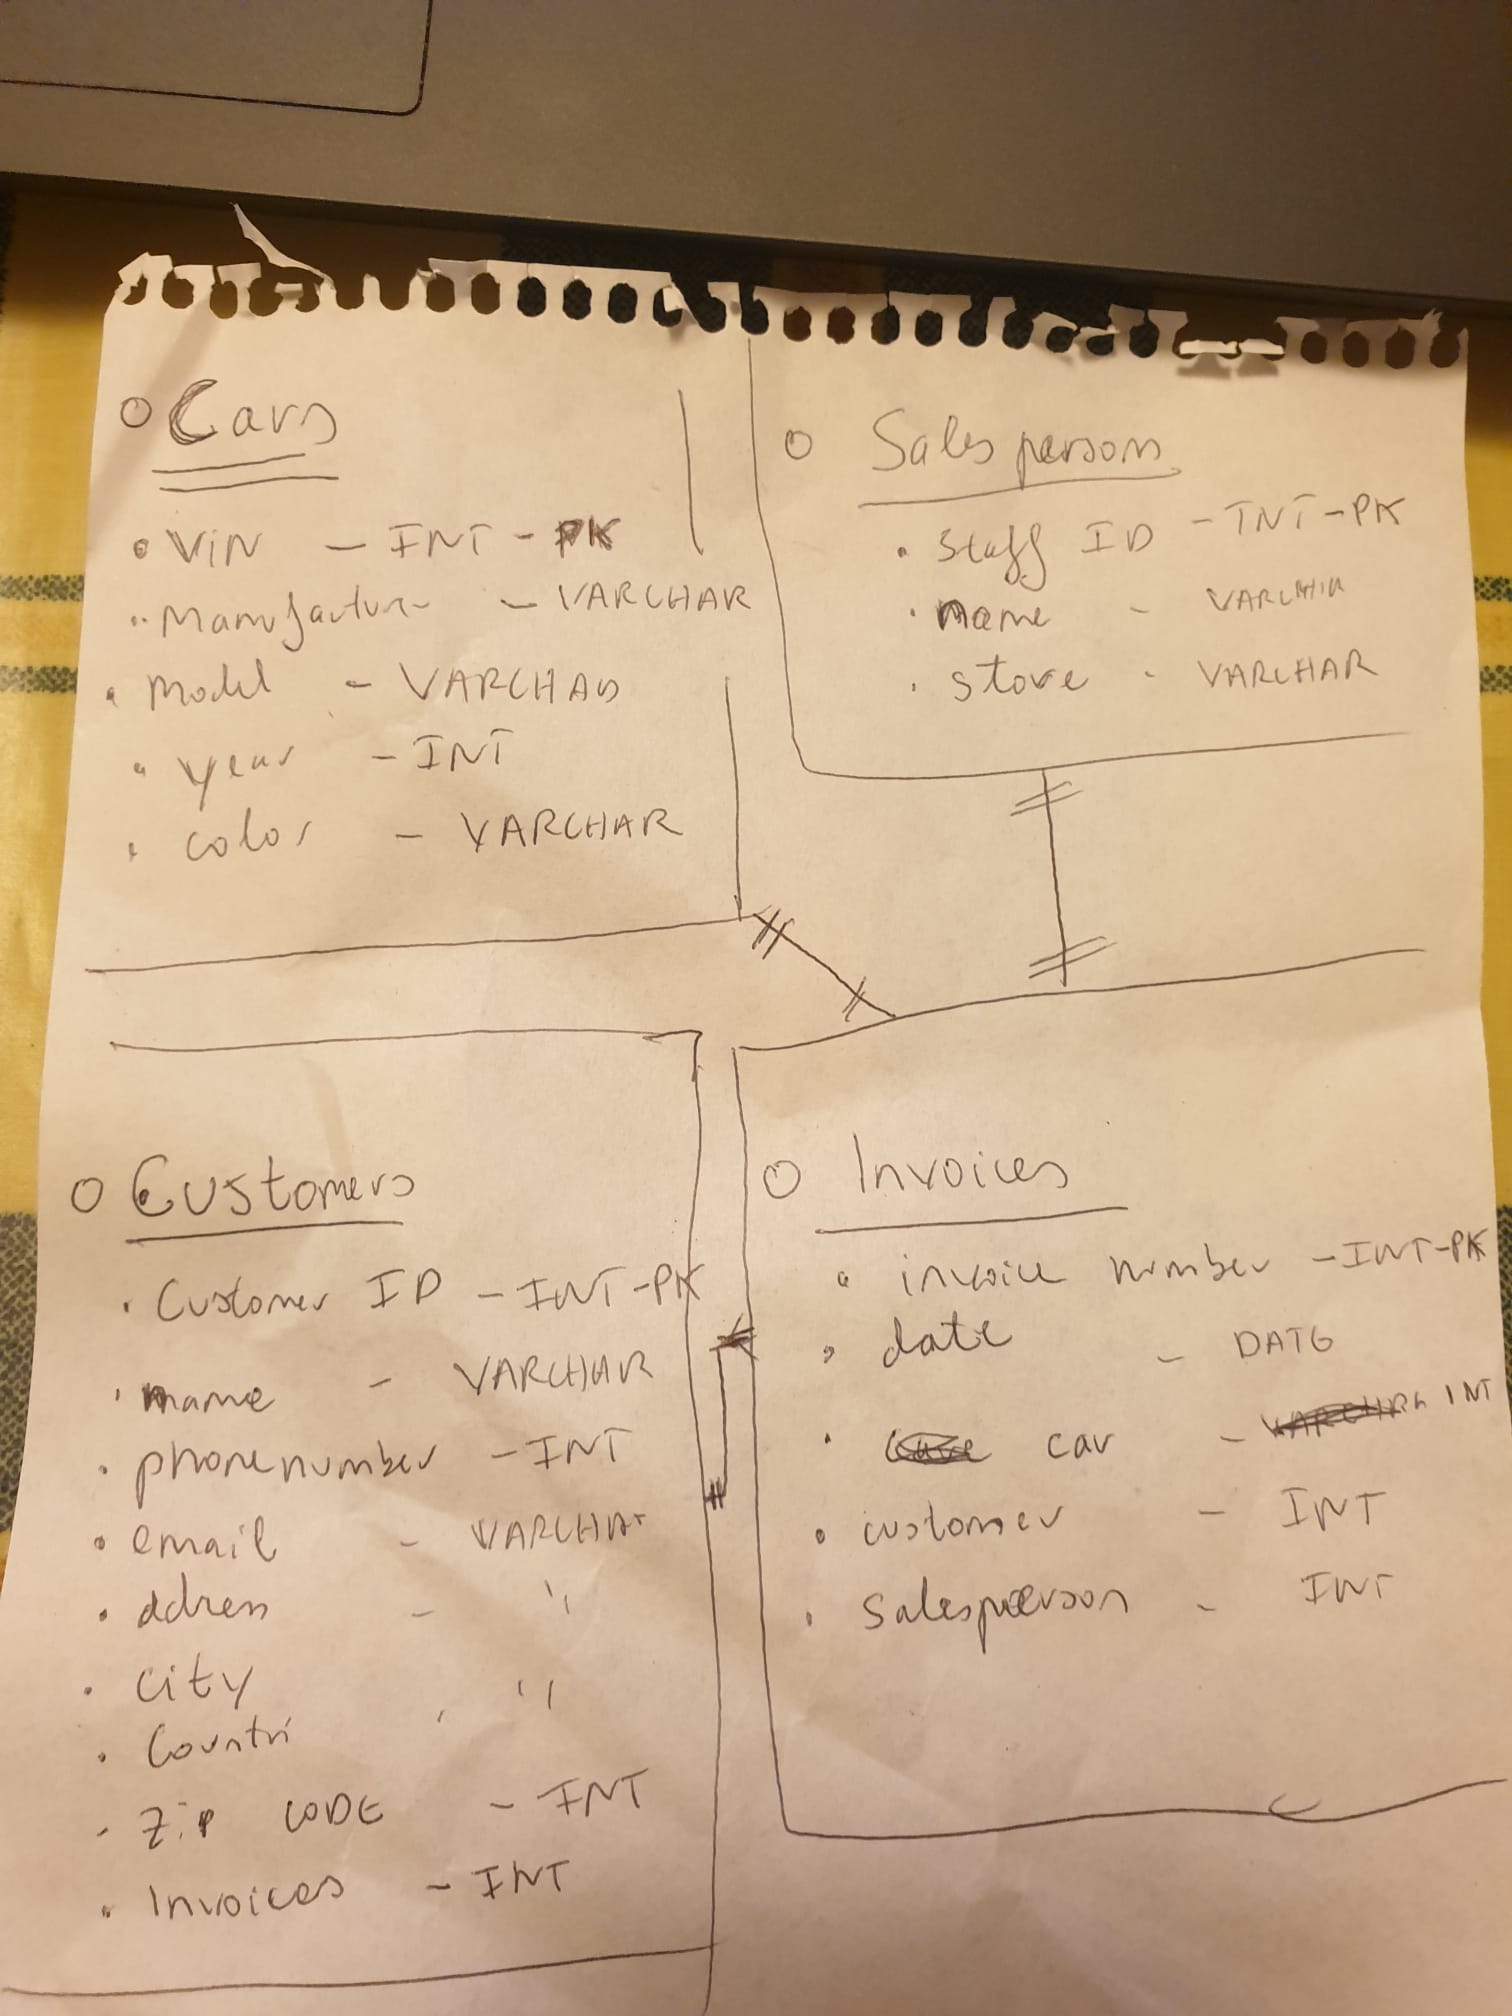 Cars
VIN - INT - PK
Manufacturer - VARCHAR
Model - VARCHAR
year - INT
color - VARCHAR
Sales person
Staff ID - INT - PK
name - VARCHAR
store - VARCHAR
Customers
Customer ID - INT - PK
name - VARCHAR
phone number - INT
email - VARCHAR
adress - "
City "
Countri
Zip CODE - INT
Invoices - INT
Invoices
invoice number - INT - PK
date - DATE
car - INT
customer - INT
Salesperson - INT